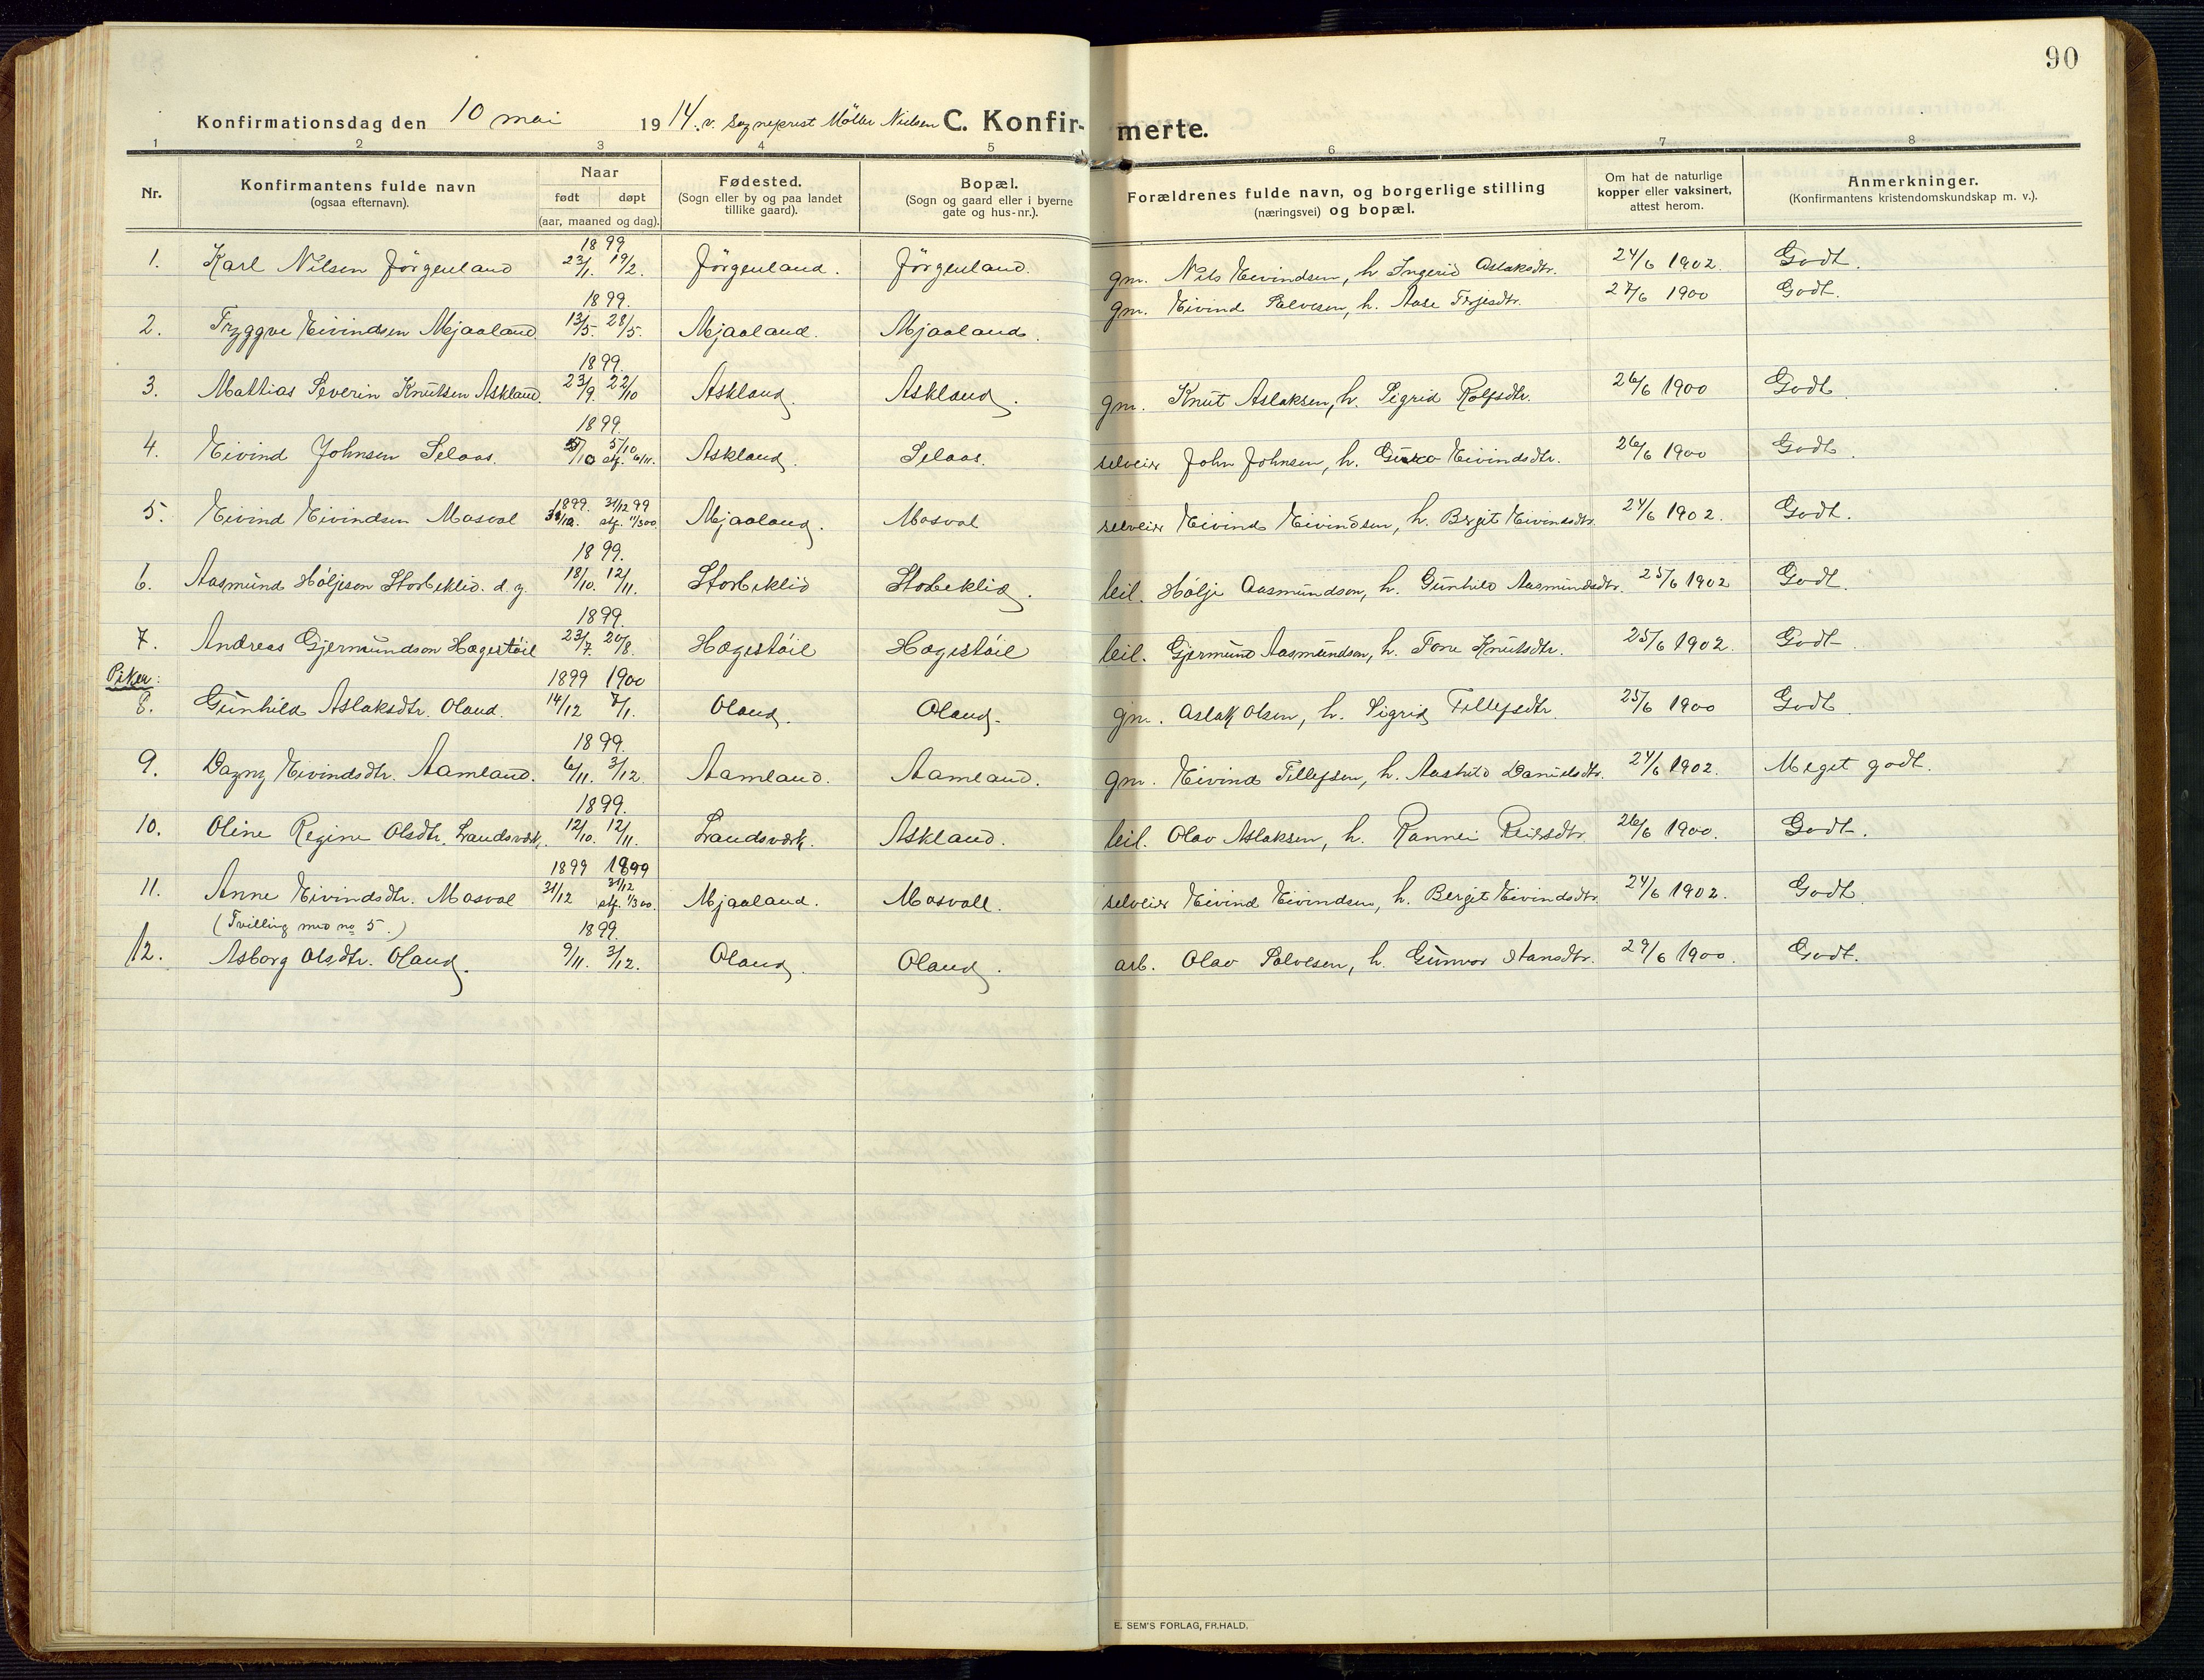 90
Konfirmationsdag den 10 mai 1914. v. Sogneprest Möller Nielsen C. Konfir- merte.
1 2 3 4 5 6 7 8
Nr. Konfirmantens fulde navn (ogsaa efternavn). Naar født døpt (aar, maaned og dag). Fødested. (Sogn eller by og paa landet tillike gaard). Bopæl. (Sogn og gaard eller i byerne gate og hus-nr.). Forældrenes fulde navn, og borgerlige stilling (næringsvei) og bopæl. Om hat de naturlige kopper eller vaksinert, attest herom. Anmerkninger. (Konfirmantens kristendomskundskap m. v.).
1899
1. Karl Nilsen Jörgenland 23/1. 19/2. Jörgenland. Jörgenland. gm. Nils Eivindsen, h. Ingerid Aslaksdtr. 24/6 1902. Godt.
1899.
2. Tryggve Eivindsen Mjaaland. 13/5. 28/5. Mjaaland. Mjaaland. gm. Eivind Salvesen, h. Aase Terjesdtr. 27/6 1900 Godt.
1899.
3. Mathias Severin Knutsen Askland. 23/9 22/10 Askland. Askland. gm. Knut Aslaksen, h. Sigrid Rolfsdtr. 26/6 1900 Godt.
1899.
4. Eivind Johnsen Selaas. 5/10 5/10 stf. 6/11. Askland. Selaas. selveier John Johnsen, h. Eivindsdtr. 26/6 1900 Godt.
5. Eivind Eivindsen Mosval 1899. 31/12. 31/12 99 stf. 11/3 00. Mjaaland. Mosval selveier Eivind Eivindsen, h. Bergit Eivindsdtr. 24/6 1902. Godt.
1899.
6. Aasmund Höljeson Storbeklid. d. y. 18/10. 12/11. Storbeklid Storbeklid. leil. Hölje Aasmundsen, h. Gunhild Aasmundsdtr. 25/6 1902 Godt
1899.
7. Andreas Gjermundson Hægestöil 23/7. 20/8. Hægestöil Hægestöil leil. Gjermund Aasmundsen, h. Tone Knutsdtr. 25/6 1902. Godt.
Piker:
1899 1900
8. Gunhild Aslaksdtr. Oland. 14/12 7/1. Oland. Oland. gm. Aslak Olsen, h. Sigrid Tellefsdtr. 25/6 1900 Godt.
1899.
9. Dagny Eivindsdtr. Aamland. 6/11. 3/12. Aamland. Aamland. gm. Eivind Tellefsen, h. Aashild Danielsdtr. 24/6 1902. Meget godt.
1899.
10. Oline Regine Olsdtr. Landsverk. 12/10. 12/11. Landsverk. Askland. leil. Olav Aslaksen, h. Rannei Reiersdtr. 26/6 1900. Godt.
1899 1899
11. Anne Eivindsdtr. Mosval 31/12 31/12 stf. 11/3 00. Mjaaland. Mosvall. selveier Eivind Eivindsen, h. Bergit Eivindsdtr. 24/6 1902. Godt.
(Tvilling med no 5.) 1899.
12. Asborg Olsdtr. Oland. 9/11. 3/12. Oland. Oland. arb. Olav Salvesen, h. Gunvor Hansdtr. 29/6 1900. Godt.
E. SEM'S FORLAG, FR.HALD.